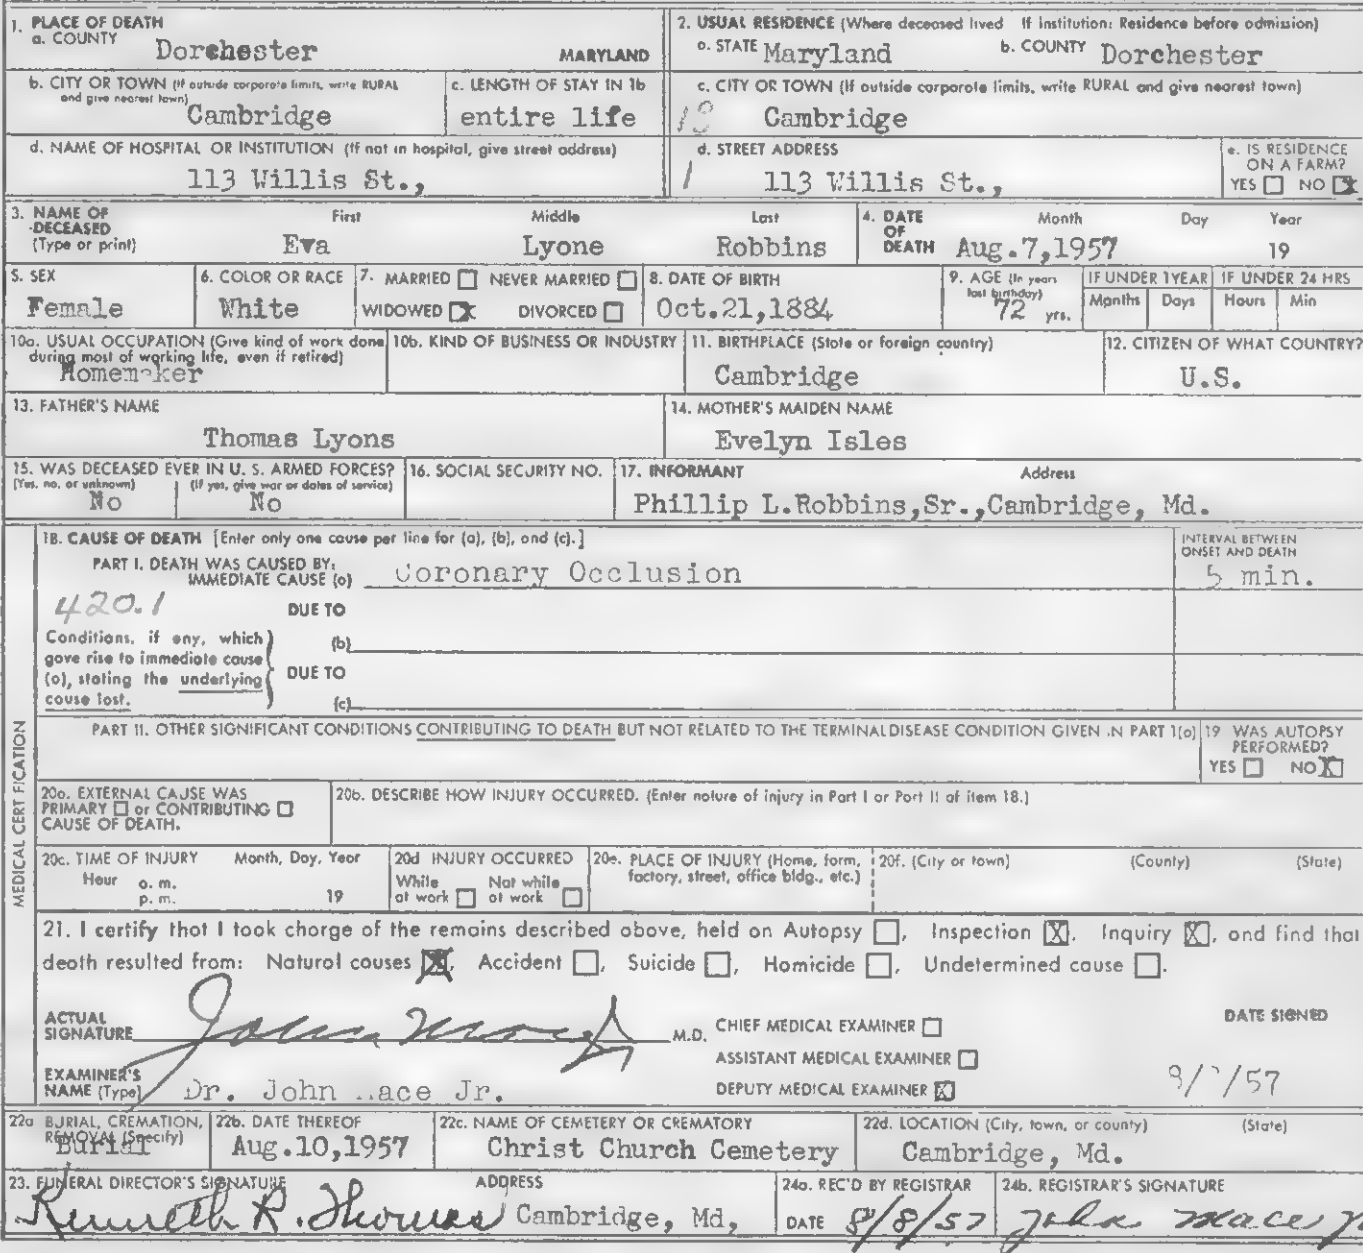 1. PLACE OF DEATH
a. COUNTY Dorchester MARYLAND
2. USUAL RESIDENCE (Where deceased lived If institution: Residence before admission)
a. STATE Maryland b. COUNTY Dorchester
b. CITY OR TOWN (If outside corporate limits, write RURAL and give nearest town) Cambridge
c. LENGTH OF STAY IN 1b entire life
c. CITY OR TOWN (If outside corporate limits, write RURAL and give nearest town) Cambridge
d. NAME OF HOSPITAL OR INSTITUTION (If not in hospital, give street address)
113 Willis St.,
d. STREET ADDRESS
113 Willis St.,
e. IS RESIDENCE ON A FARM?
YES NO X
3. NAME OF DECEASED (Type or print)
First Middle Last
Eva Lyone Robbins
4. DATE OF DEATH Month Day Year
Aug.7,1957 19
5. SEX
Female
6. COLOR OR RACE
White
7. MARRIED NEVER MARRIED
WIDOWED X DIVORCED
8. DATE OF BIRTH
Oct.21,1884
9. AGE (In years last birthday) 72 yrs.
IF UNDER 1 YEAR Months Days
IF UNDER 24 HRS Hours Min
10a. USUAL OCCUPATION (Give kind of work done during most of working life, even if retired)
Homemaker
10b. KIND OF BUSINESS OR INDUSTRY
11. BIRTHPLACE (State or foreign country)
Cambridge
12. CITIZEN OF WHAT COUNTRY?
U.S.
13. FATHER'S NAME
Thomas Lyons
14. MOTHER'S MAIDEN NAME
Evelyn Isles
15. WAS DECEASED EVER IN U. S. ARMED FORCES?
(Yes, no, or unknown) (If yes, give war or dates of service)
No No
16. SOCIAL SECURITY NO.
17. INFORMANT Address
Phillip L.Robbins,Sr.,Cambridge, Md.
MEDICAL CERTIFICATION
18. CAUSE OF DEATH [Enter only one cause per line for (a), (b), and (c).]
INTERVAL BETWEEN ONSET AND DEATH
PART I. DEATH WAS CAUSED BY:
IMMEDIATE CAUSE (a) Coronary Occlusion 5 min.
420.1 DUE TO
Conditions, if any, which gave rise to immediate cause (a), stating the underlying cause last.
(b)
DUE TO
(c)
PART II. OTHER SIGNIFICANT CONDITIONS CONTRIBUTING TO DEATH BUT NOT RELATED TO THE TERMINAL DISEASE CONDITION GIVEN IN PART 1(a)
19 WAS AUTOPSY PERFORMED?
YES NO X
20a. EXTERNAL CAUSE WAS
PRIMARY or CONTRIBUTING
CAUSE OF DEATH.
20b. DESCRIBE HOW INJURY OCCURRED. (Enter nature of injury in Part I or Part II of item 18.)
20c. TIME OF INJURY Month, Day, Year
Hour a. m.
p. m. 19
20d INJURY OCCURRED
While at work Not while at work
20e. PLACE OF INJURY (Home, farm, factory, street, office bldg., etc.)
20f. (City or town) (County) (State)
21. I certify that I took charge of the remains described above, held on Autopsy , Inspection X, Inquiry X, and find that
death resulted from: Natural causes X, Accident , Suicide , Homicide , Undetermined cause .
ACTUAL SIGNATURE John Mace Jr M.D.
CHIEF MEDICAL EXAMINER
DATE SIGNED
ASSISTANT MEDICAL EXAMINER
EXAMINER'S NAME (Type) Dr. John Mace Jr.
DEPUTY MEDICAL EXAMINER X
22a BURIAL, CREMATION, REMOVAL (Specify)
Burial
22b. DATE THEREOF
Aug.10,1957
22c. NAME OF CEMETERY OR CREMATORY
Christ Church Cemetery
22d. LOCATION (City, town, or county) (State)
Cambridge, Md.
23. FUNERAL DIRECTOR'S SIGNATURE ADDRESS
Kenneth R. Thomas Cambridge, Md,
24a. REC'D BY REGISTRAR
DATE 8/8/57
24b. REGISTRAR'S SIGNATURE
John Mace Jr